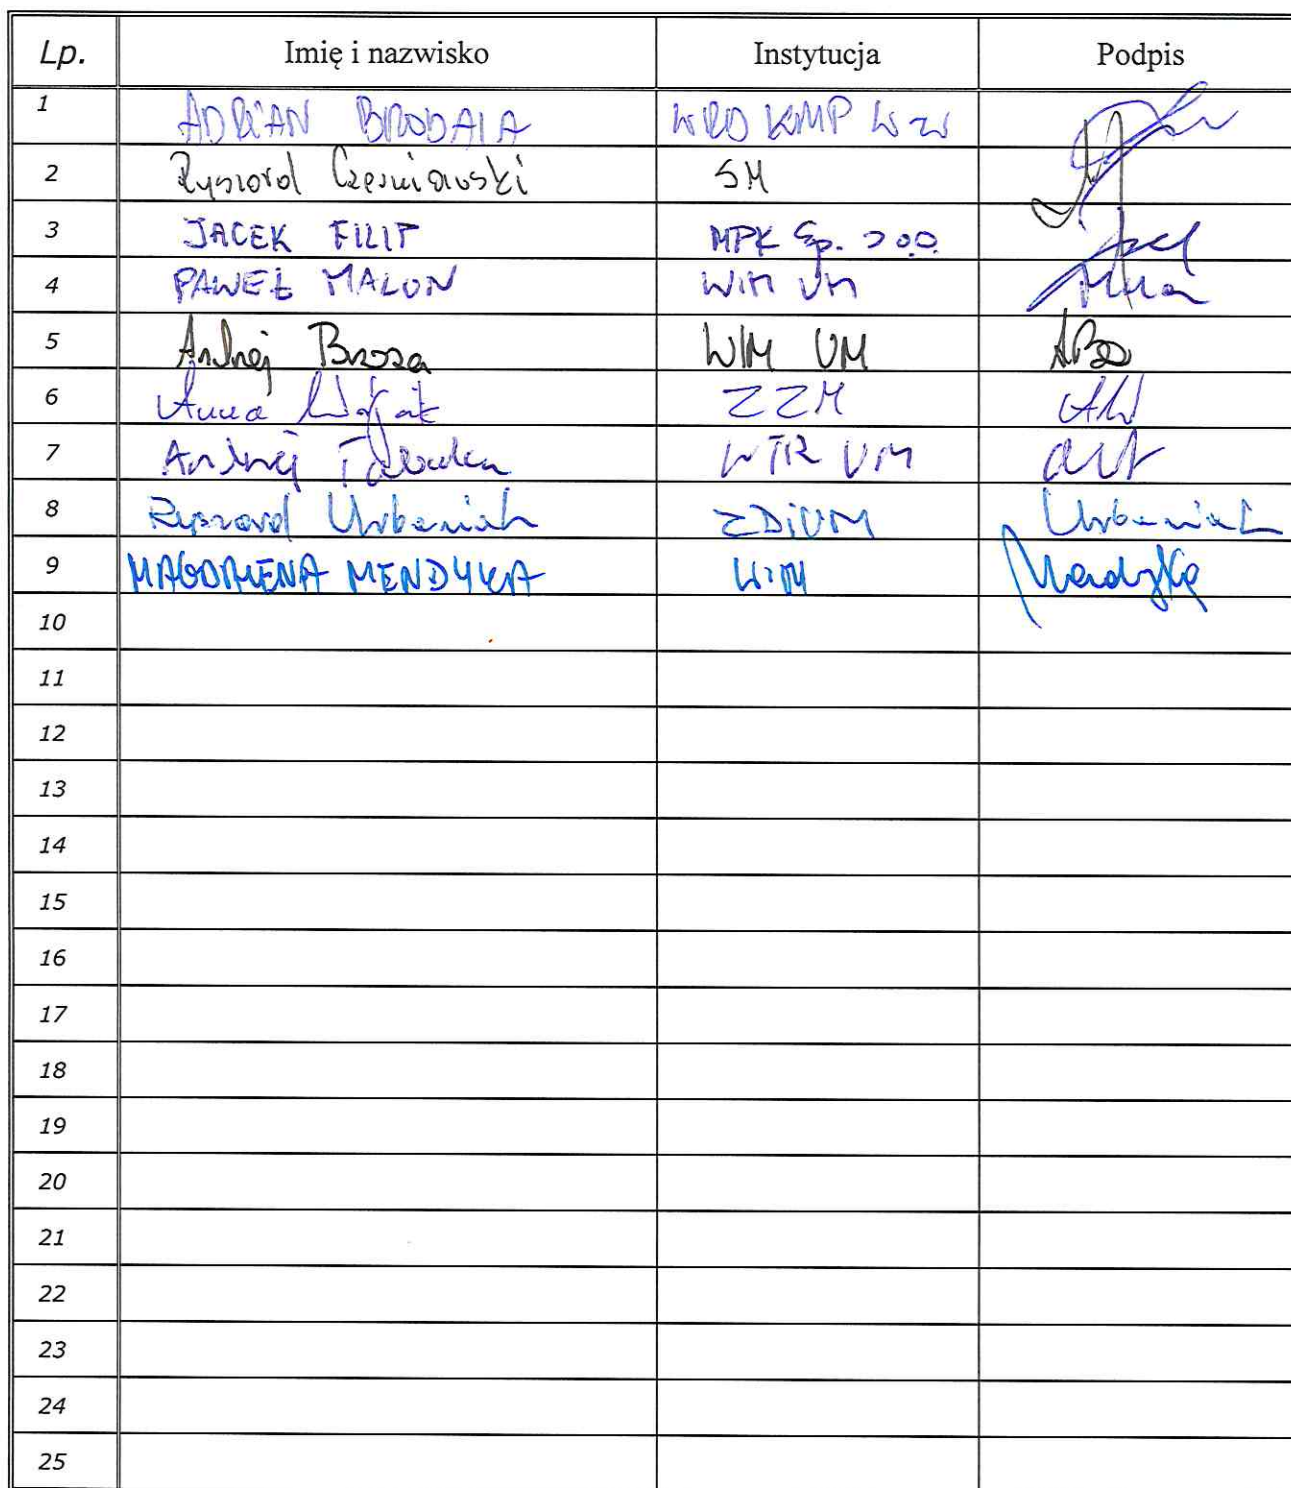 Lp. Imię i nazwisko Instytucja Podpis
1 ADRIAN BRODALA WRD KMP W-W
2 Ryszard Czerniawski SM
3 JACEK FILIP MPK Sp. z o.o.
4 PAWEŁ MALON WIM UM
5 Andrzej Brzoza WIM UM
6 Anna ZZM
7 Andrzej WTR UM
8 Ryszard Urbaniak ZDiUM Urbaniak
9 MAGDALENA MENDYKA WIM Mendyka
10
11
12
13
14
15
16
17
18
19
20
21
22
23
24
25